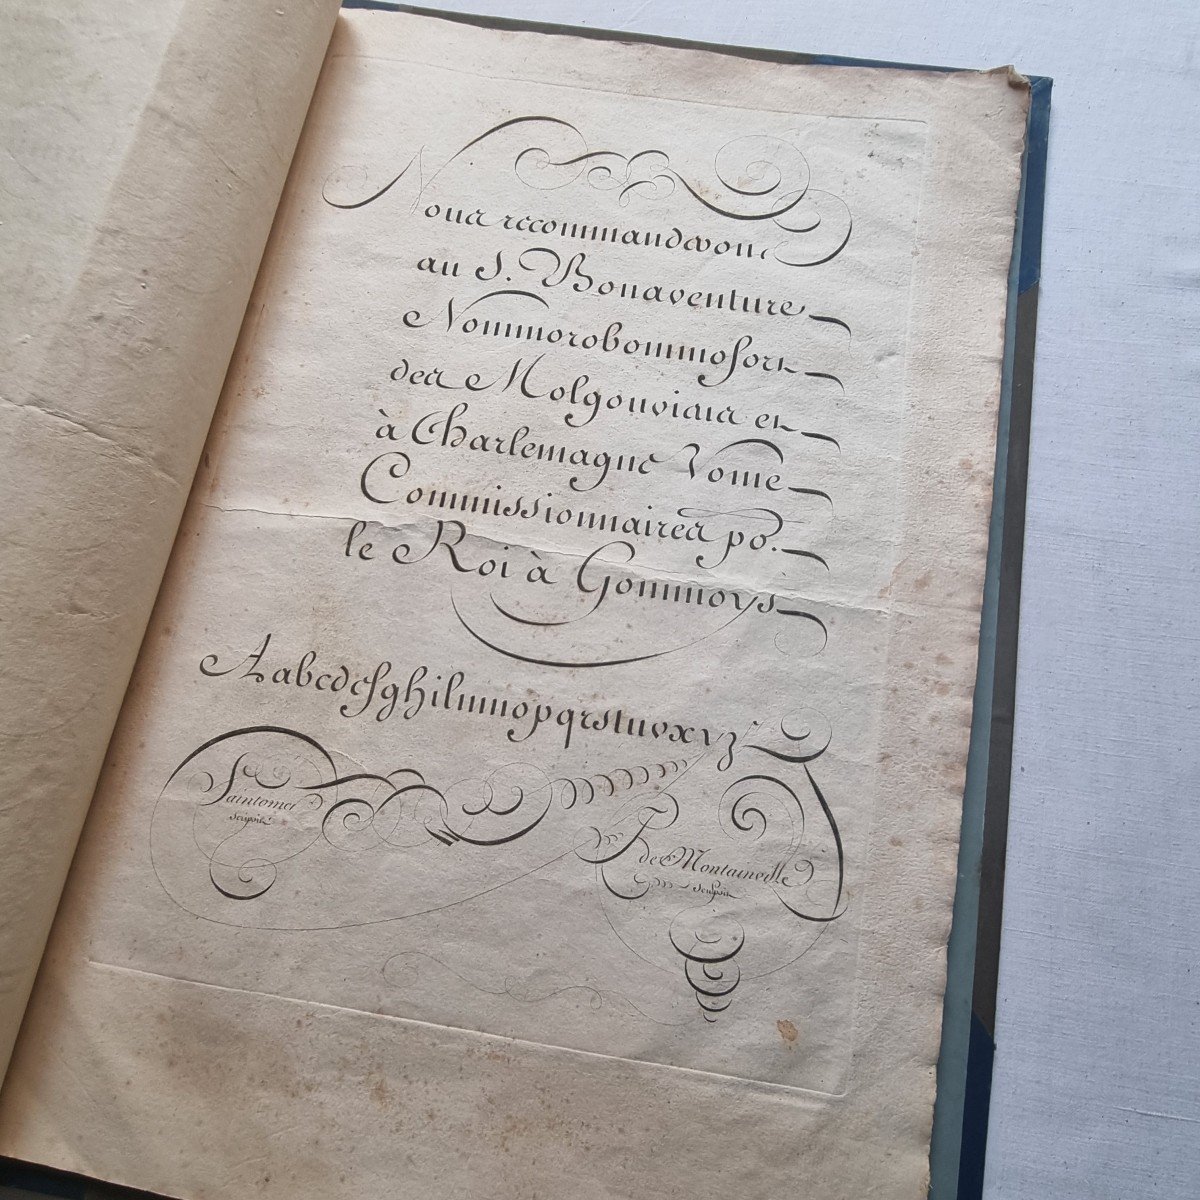 Nous recommandons
au S. Bonaventure
Nommorobommosort
des Molgouviaia et
à Charlemagne Vome
Commissionnaires po.
le Roi à Gommoys
Aabcdefghilmnopqrstuvxyz
Saintomer
scripsit
de Montainville
sculpsit